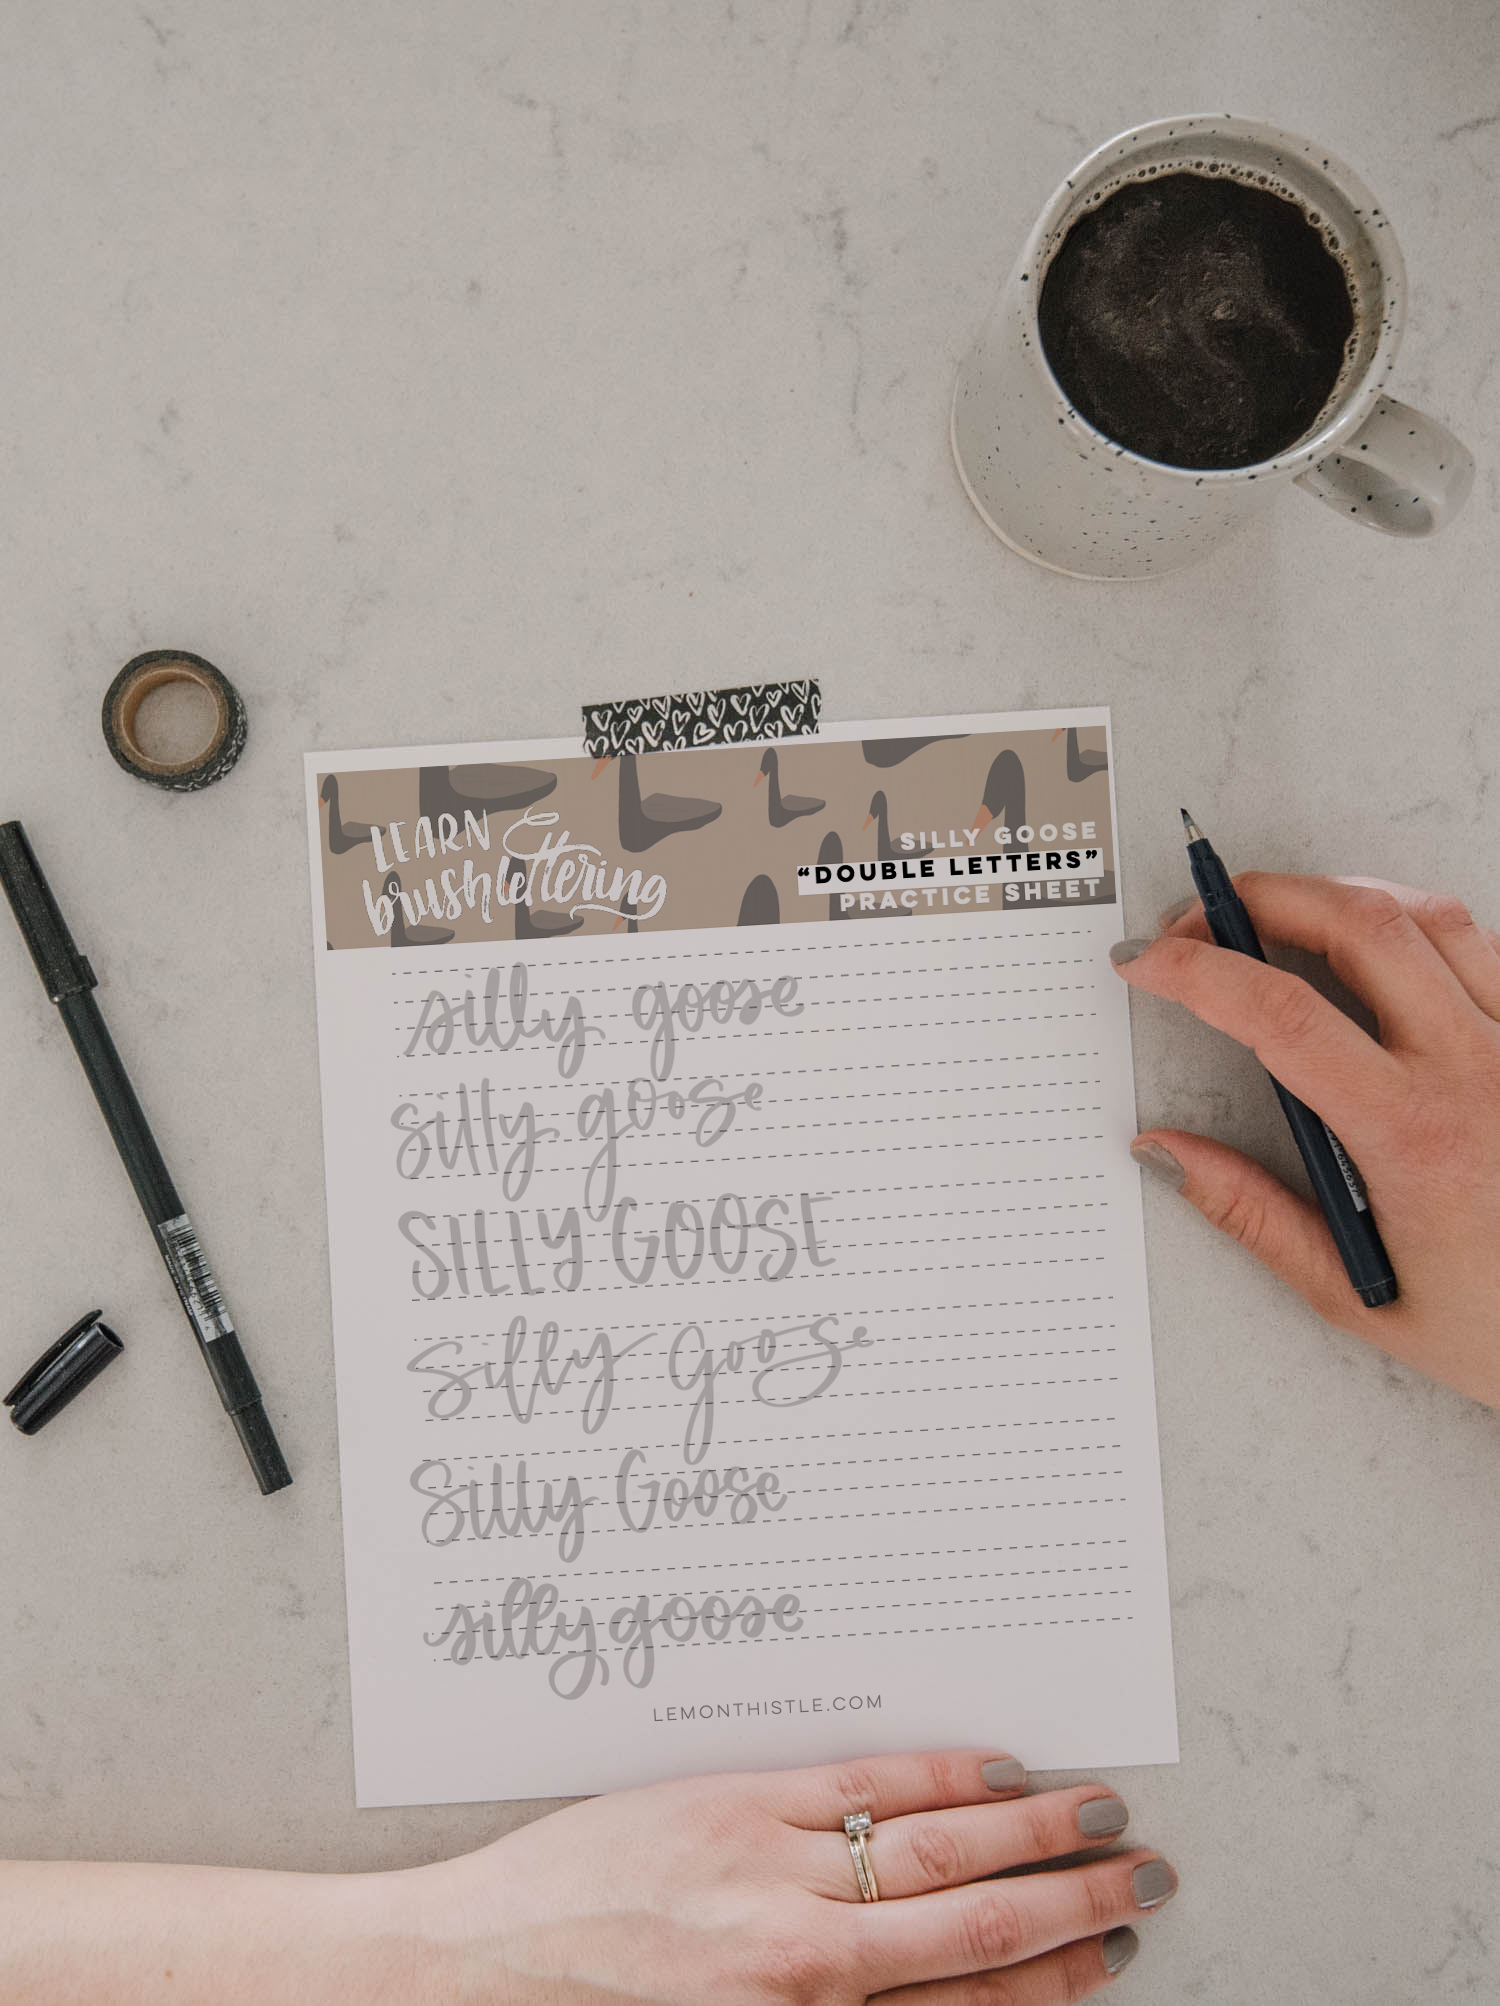 LEARN
brushlettering
SILLY GOOSE
“DOUBLE LETTERS”
PRACTICE SHEET
silly goose
silly goose
SILLY GOOSE
Silly goose
Silly Goose
silly goose
LEMONTHISTLE.COM